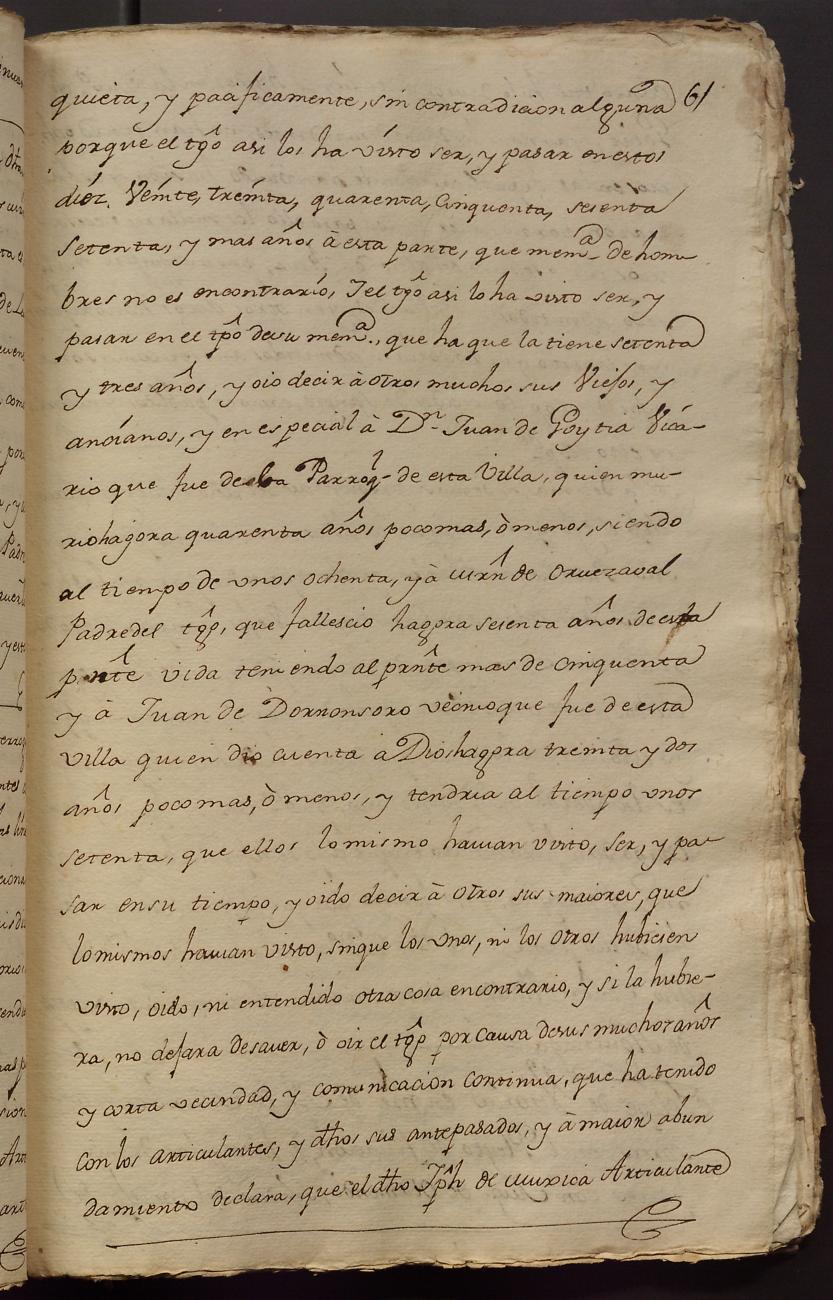 quieta, y pacificamente, sin contradicion alguna 61
porque el tgô asi los ha visto ser, y pasar en estos
diez, Veinte, treinta, quarenta, Cinquenta, sesenta
setenta, y mas añôs à esta parte, que memª de hom
bres no es encontrario, Iel tgô asi lo ha visto ser, y
pasar en el tpô de su memª., que ha que la tiene setenta
y tres añôs, y oio decir à otros muchos sus Viejos, y
ancianos, y en especial à Dn. Juan de Goytia Vica-
rio que fue de la Parroql de esta Villa, quien mu-
rio hagora quarenta añôs poco mas, ò menos, siendo
al tiempo de unos ochenta, y à de Oruezaval
Padre del tgô, que fallescio hagora sesenta añôs de esta
pnte vida teniendo al prnte mas de cinquenta
y à Juan de Dornonsoro vecino que fue de esta
villa quien dio cuenta à Dios hagora treinta y dos
añôs poco mas, ò menos, y tendria al tiempo unos
setenta, que ellos lo mismo havian visto, ser, y pa-
sar en su tiempo, y oido decir à otros sus maiores, que
lo mismos havian visto, sin que los unos, ni los otros hubicien
visto, oido, ni entendido otra cosa encontrario, y si la hubie-
ra, no dejara de saver, ò oir el tgô por causa de sus muchos añôs
y corta vecindad, y comunicacion continua, que ha tenido
con los articulantes, y dhos sus antepasados, y à maior abun
damiento declara, que el dho Jph de Muxica Articulante